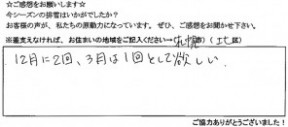 ☆ご感想をお願いします☆
今シーズンの排雪はいかがでしたか?
お客様の声が、私たちの原動力になっています。ぜひ、ご感想をお聞かせ下さい。
※差支えなければ、お住まいの地域をご記入ください→札幌市(北区)
12月に2回、3月は1回として欲しい。
ご協力ありがとうございました!